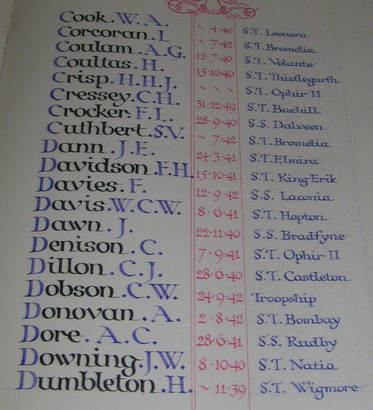 Cook. W. A. ~ 4·40 S.T. Leonora
Corcoran. I ~ 7·42 S.T. Bromelia
Coulam. A. G. 12·7·40 S.T. Volante
Coultas. H. 15·10·40 S.T. Thistlegarth
Crisp. H. H. J. ~ ~ ~ S.T. Ophir II
Cressey. C. H. 31·12·49 S.T. Boxhill
Crocker. F. L. 28·9·40 S.S. Dalveen
Cuthbert. S. V. ~ 7·42 S.T. Bromelia
Dann. J. E. 24·3·41 S.T. Elmira
Davidson. F. H. 15·10·41 S.T. King Erik
Davies. F. 12·9·42 S.S. Laconia
Davis. W. C. W. 8·6·41 S.T. Hopton
Dawn. J. 22·11·40 S.S. Bradfyne
Denison. C. 7·9·41 S.T. Ophir II
Dillon. C. J. 28·6·40 S.T. Castleton
Dobson. C. W. 24·9·42 Troopship
Donovan. A. 2·8·42 S.T. Bombay
Dore. A. C. 28·6·41 S.S. Rudby
Downing. J. W. 8·10·40 S.T. Natia
Dumbleton. H. ~ 11·39 S.T. Wigmore